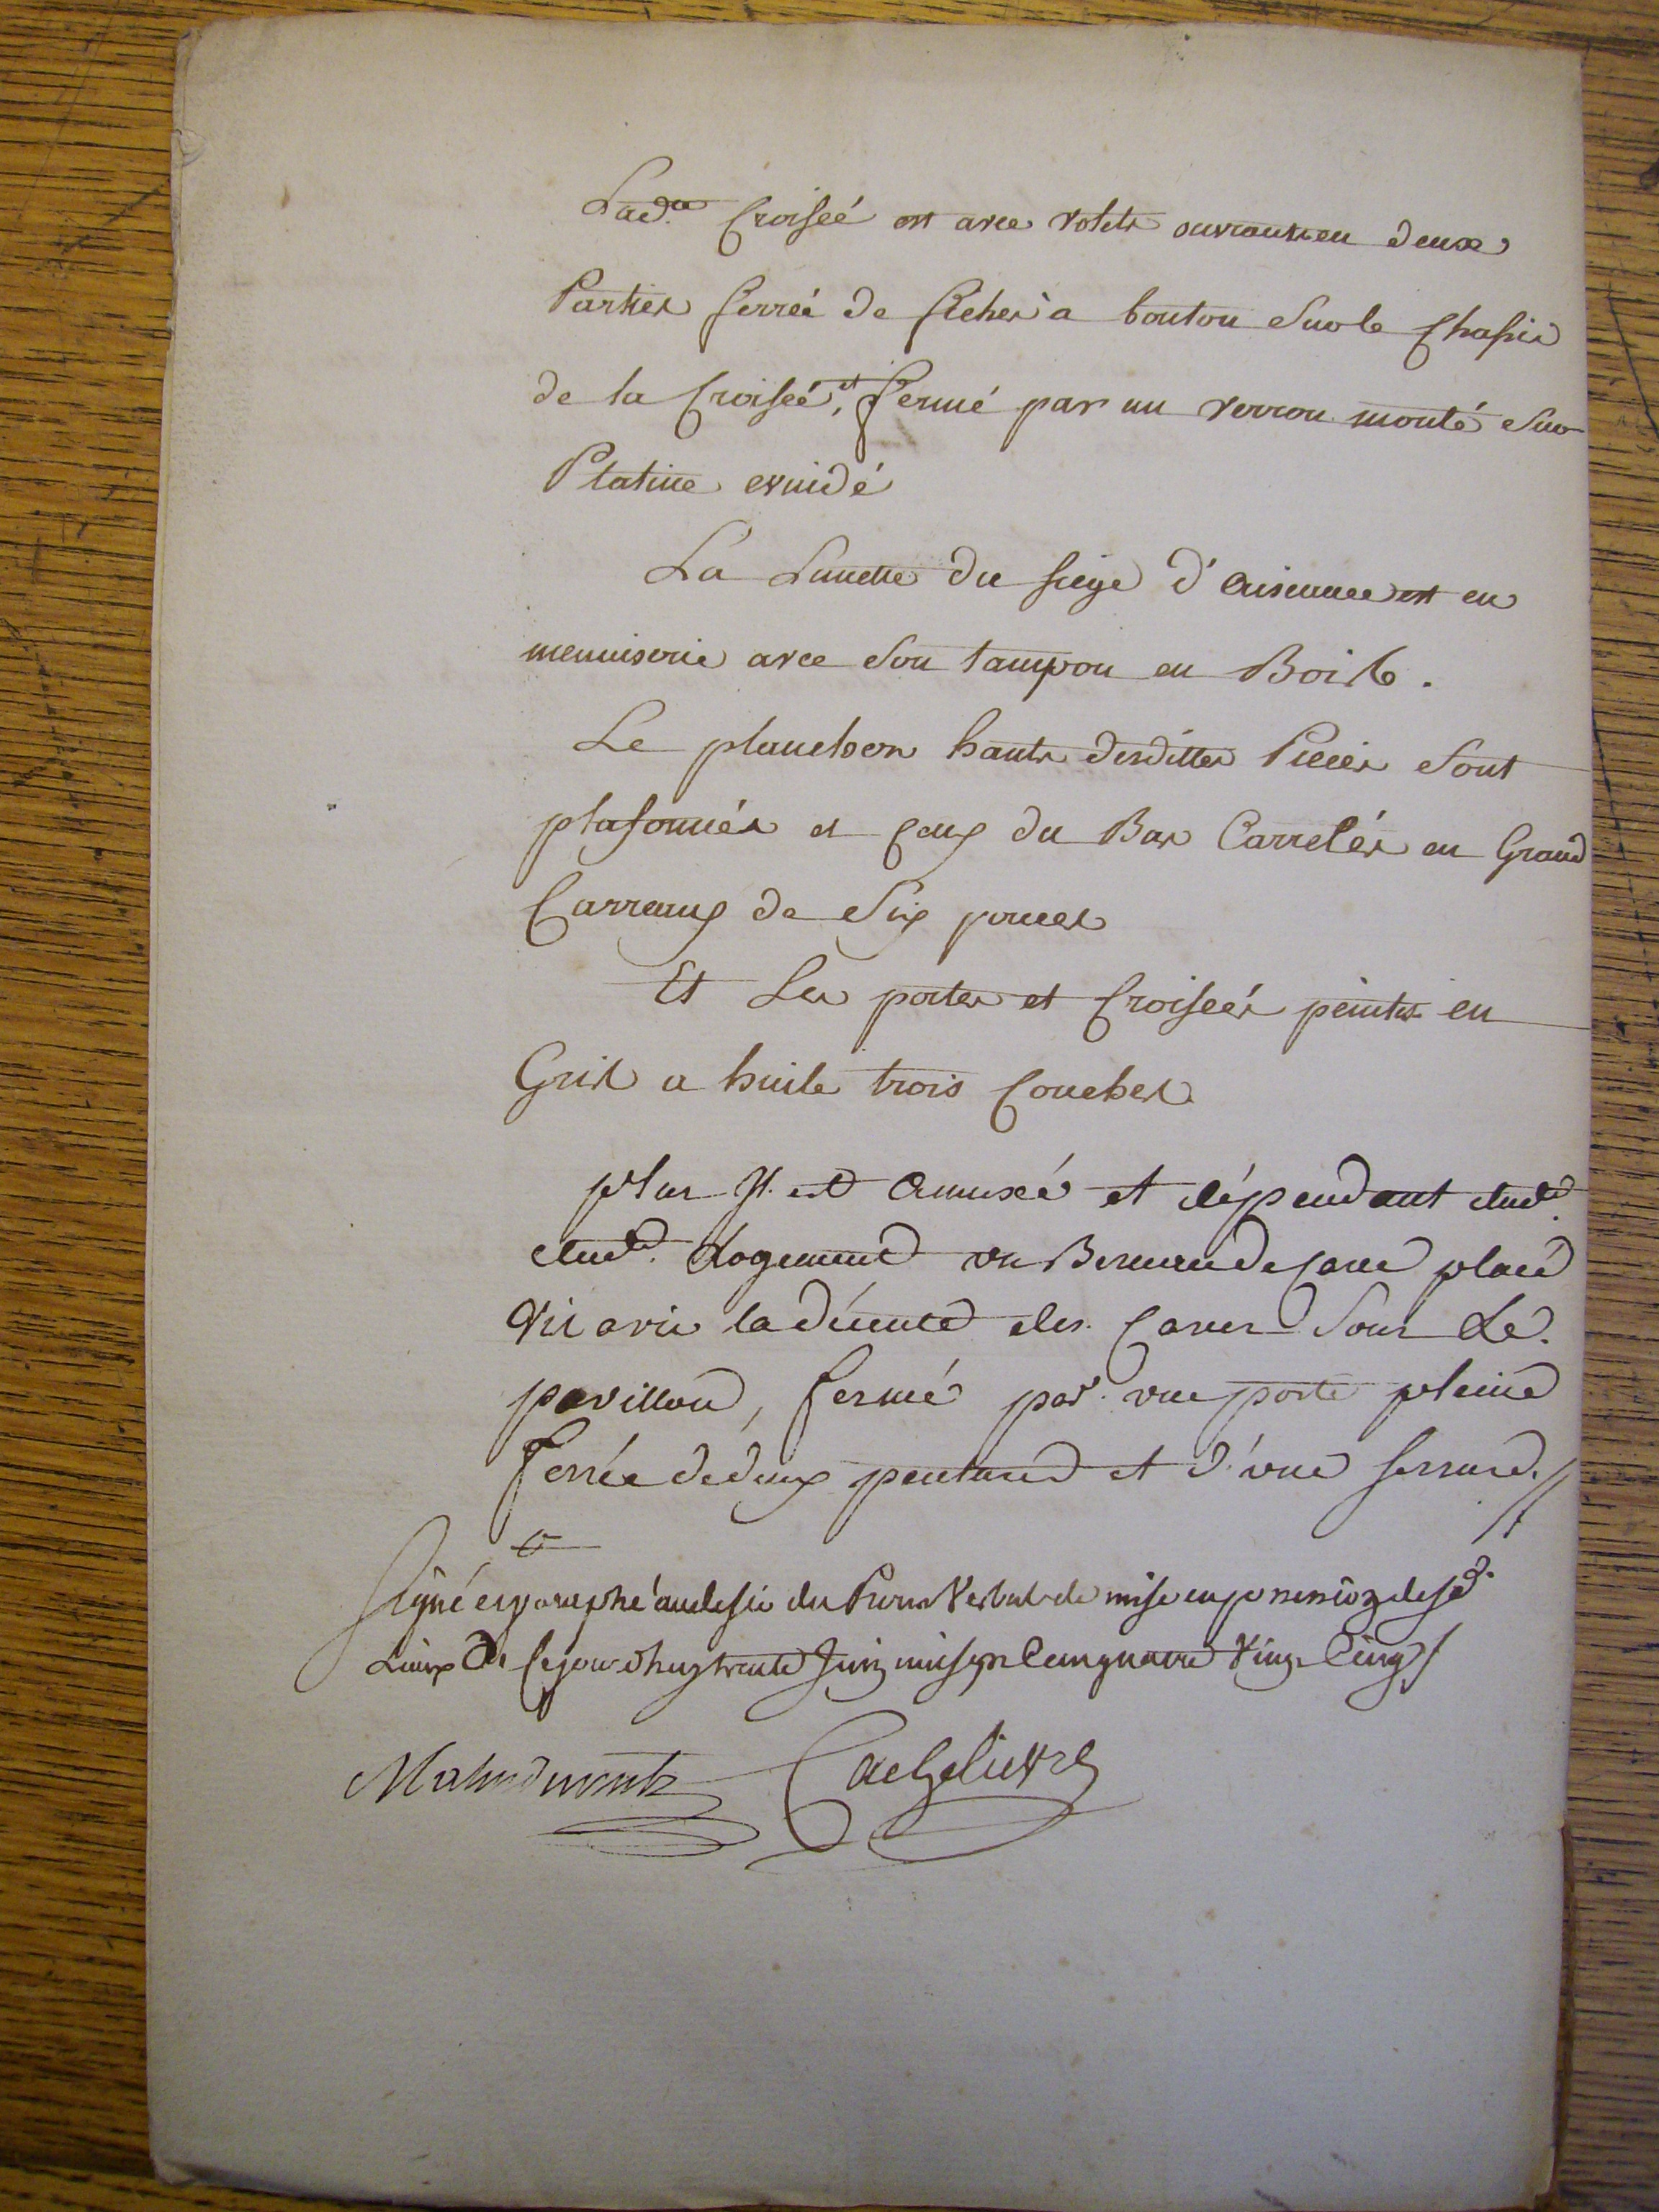 Lad.te Croiseé est avec volets ouvrants en deux
Parties ferreé de fiches a bouton sur le Chassis
de la Croiseé, et fermé par un verrou monté sur
Platine evuidé
La Lunette du siege d'aisance est en
menuiserie avec son tampon en Bois.
Le planchers hauts desdittes Pieces sont
plafonnés et ceux du Bas Carrelés en Grand
Carreaux de six pouces
Et Les portes et Croiseés peintes en
Gris a huile trois Couches
plus Il est annexé et dépendant dud.
dud. Logement un Berceau de cave placé
vis avis la décente des caves sous Le
pavillon, fermé par une porte pleine
ferrée de deux pentures et d'une serrure.
Signé et paraphé au desir du Procès Verbal de mise en possession desd.
Lieux De ce jourdhuy trente Juin mil sept Cent quatre Vingt Cinq